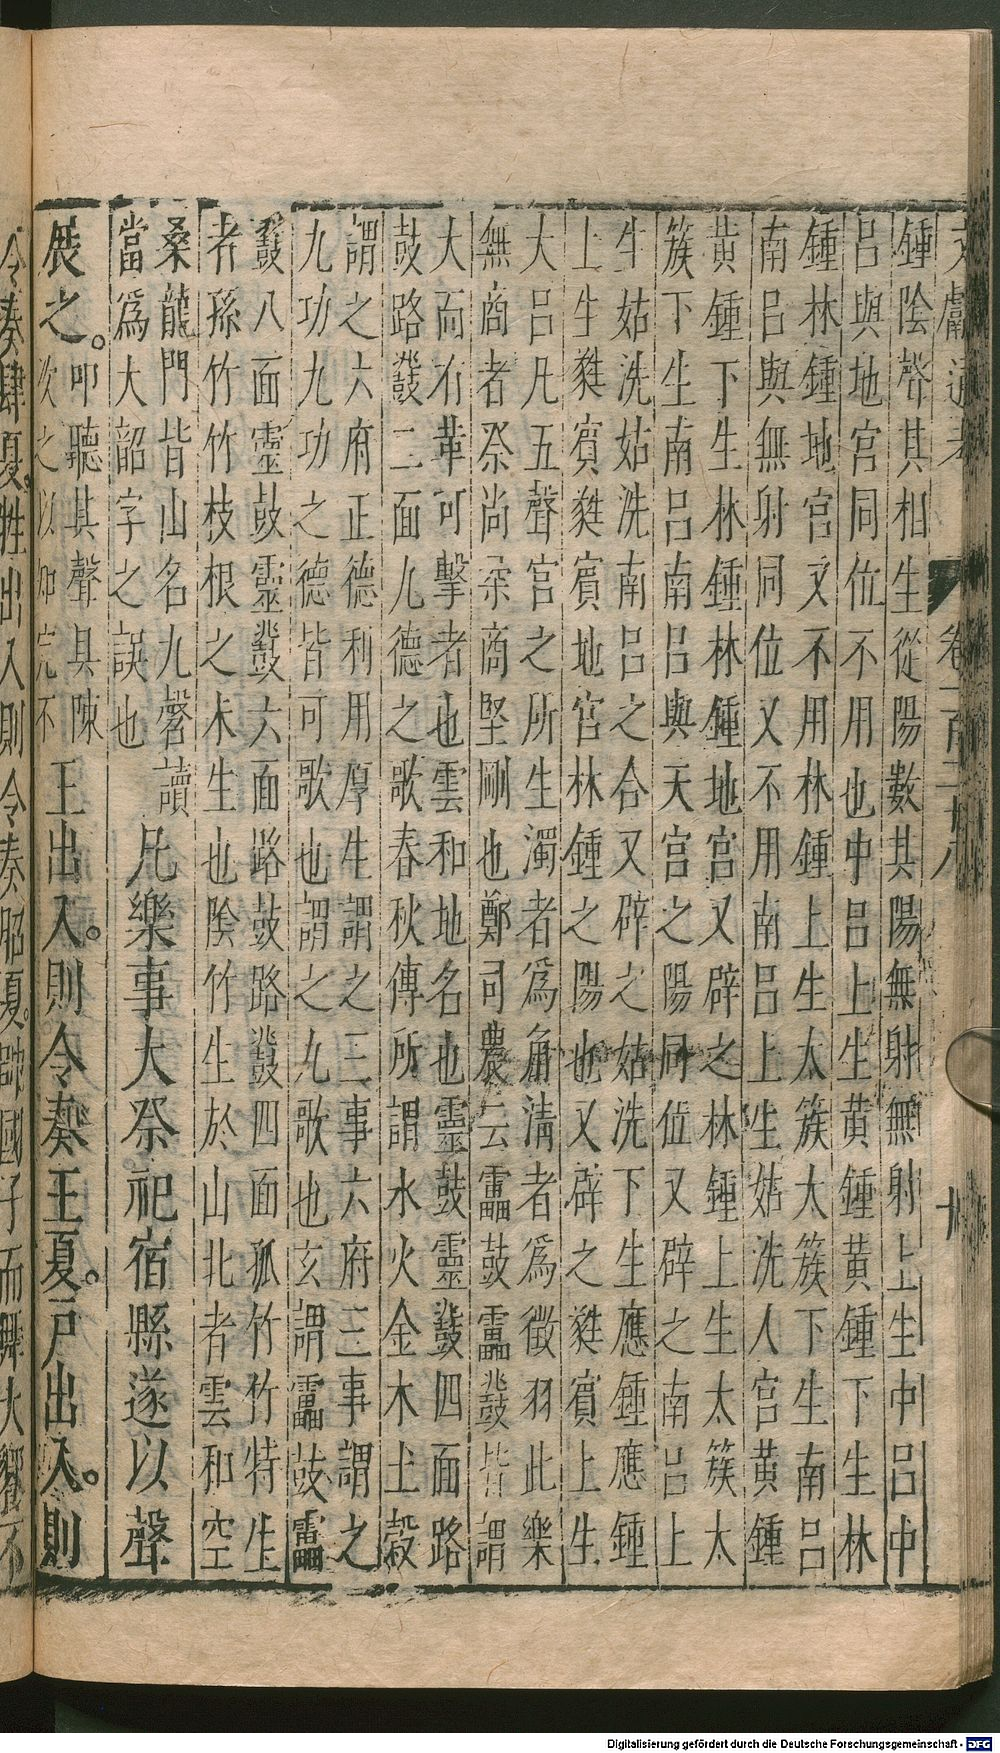 文獻通考 卷一百二十八 十
鍾陰聲其相生從陽數其陽無射無射上生中呂中
呂與地宮同位不用也中呂上生黃鍾黃鍾下生林
鍾林鍾地宮又不用林鍾上生太簇大簇下生南呂
南呂與無射同位又不用南呂上生姑洗人宮黃鍾
黃鍾下生林鍾林鍾地宮又辟之林鍾上生太簇太
簇下生南呂南呂與天宮之陽同位又辟之南呂上
生姑洗姑洗南呂之合又辟之姑洗下生應鍾應鍾
上生蕤賓蕤賓地宮林鍾之陽也又辟之蕤賓上生
大呂凡五聲宮之所生濁者為角清者為徵羽此樂
無商者祭尚柔商堅剛也鄭司農云靁鼓靁鼗皆謂
大而有革可擊者也雲和地名也靈鼓靈鼗四面路
鼓路鼗二面九德之歌春秋傳所謂水火金木土穀
謂之六府正德利用厚生謂之三事六府三事謂之
九功九功之德皆可歌也謂之九歌也玄謂靁鼓靁
鼗八面靈鼓靈鼗六面路鼓路鼗四面孤竹竹特生
者孫竹竹枝根之末生也陰竹生於山北者雲和空
桑龍門皆山名九磬讀
當爲大韶字之誤也
凡樂事大祭祀宿縣遂以聲
展之。
叩聽其聲具陳
次之以知完不
王出入。則令奏王夏。尸出入。則
令奏肆夏。牲出入則令奏昭夏。帥國子而舞大饗不
Digitalisierung gefördert durch die Deutsche Forschungsgemeinschaft - DFG